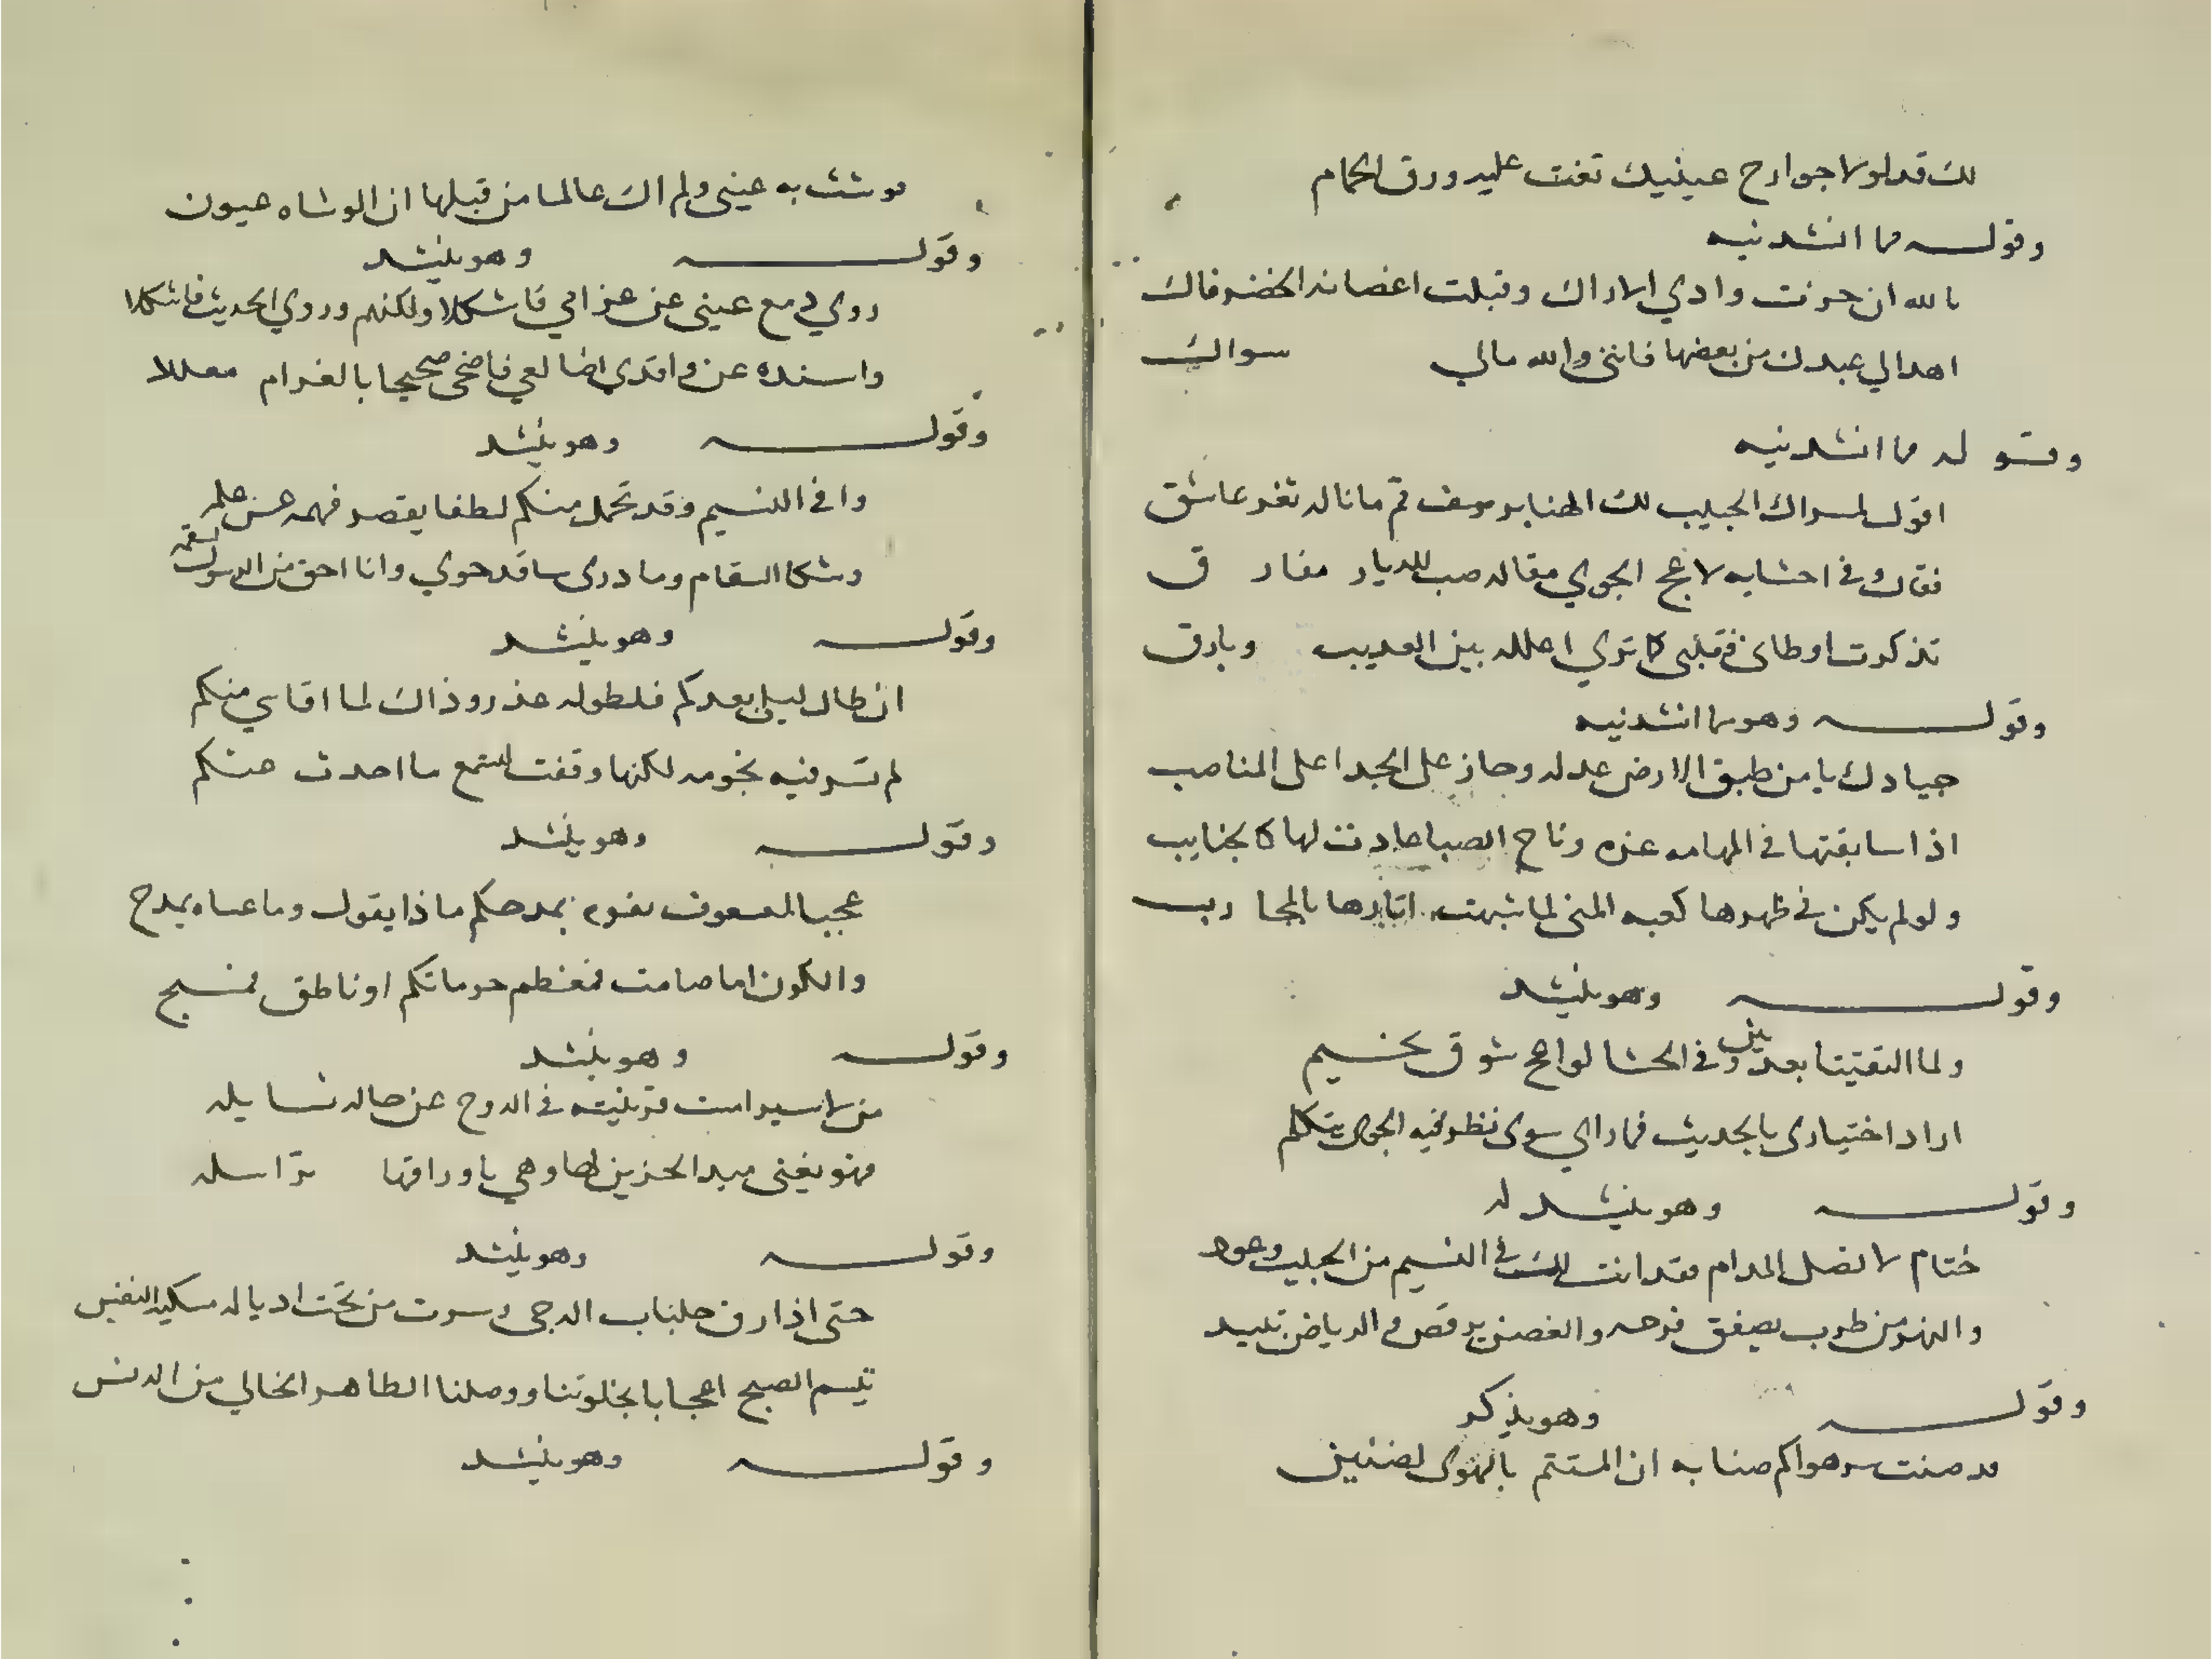 لك قد لولا جوارح عينيك تغنت عليه ورق الحمام
وقوله مما انشدنيه
بالله ان جزت وادي الاراك وقبلت اغصانه الخضر فاك
اهد الي عبدك من بعضها فانني والله مالي سواك
وقوله مما انشدنيه
اقول لمسواك الحبيب لك الهنا برشف فم ما ناله ثغر عاشق
فقال وفي احشايه لاعج الجوي مقاله صب للديار مفارق
تذكرت اوطاني فقلبي كما تري اعلله بين العذيب وبارق
وقوله وهو مما انشدنيه
جيادك يا من طبق الارض عدله وحاز على الجد اعلى المناصب
اذا سابقتها في المهامه غره رياح الصبا عادت لها كالجنايب
ولو لم يكن في ظهرها كعبه المنى لما شبهت اثارها بالمحارب
وقوله وهو ينشد
ولما التقينا بعد بين وفي الحشا لواعج شوق تخيم
اراد اختياري بالحديث فما راي سوى نظر فيه الجوى يتكلم
وقوله وهو ينشد له
ختام لا تصل المدام فقد اتت لك في النسيم من الحبيب وعود
والنهر من طرب يصفق فرحه والغصن يرقص في الرياض تميد
وقوله وهو يذكر
قد صنت سر هواكم ضنا به ان المتيم بالهوى لضنين
فوشت به عيني ولم اك عالما من قبلها ان الوشاه عيون
وقوله وهو ينشد
روي دمع عيني عن غرامي فاشكلا ولكنهم وروي الحديث فاشكلا
واسنده عن واقدي اضالعي فاضحى صحيحا بالغرام معللا
وقوله وهو ينشد
وافى النسيم وقد تحمل منكم لطفا يقصر فهمه عن علمه
وشكا السقام وما درى ما قد حوي وانا احق من الرسول بسقمه
وقوله وهو ينشد
ان طال ليلي بعدكم فلطوله عذر وذاك لما اقاسي منكم
لم تسر فيه نجومه لكنها وقفت لتسمع ما احدث عنكم
وقوله وهو ينشد
عجبا لمن يفوه بمدحكم ماذا يقول وما عساه يمدح
والكون اما صامت فمعظم حرماتكم او ناطق فمسبح
وقوله وهو ينشد
من لاسير امست قرينته في الدوح عن حاله تسايله
فهو يغني مبدا الحزين لها وهي باوراقها تراسله
وقوله وهو ينشد
حتى اذا رق جلباب الدجى وسرت من تحت اذياله مسكيه النفس
تبسم الصبح اعجابا بخلوتنا ووصلنا الطاهر الخالي من الدنس
وقوله وهو ينشد